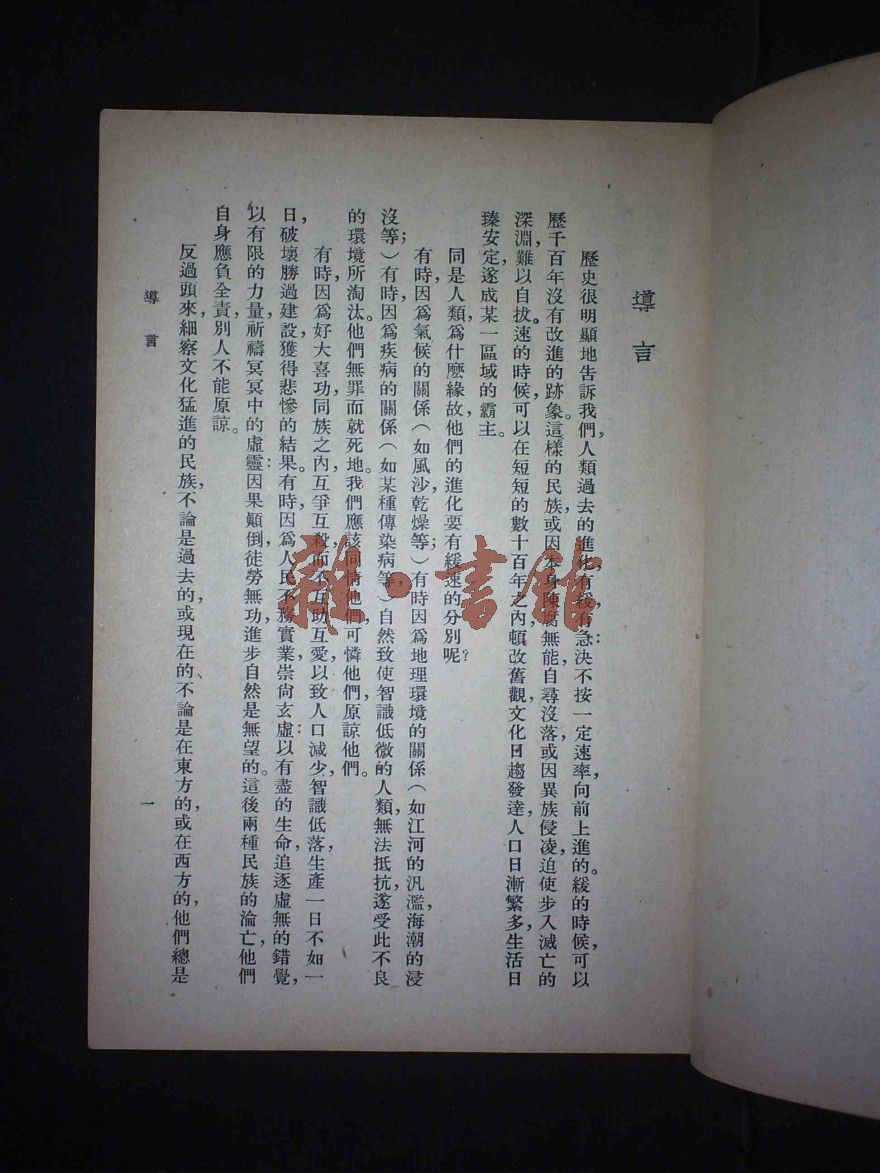 導言
歷史很明顯地告訴我們，人類過去的進化有緩有急：決不按一定速率，向前上進的。緩的時候，可以
歷千百年沒有改進的跡象。這樣的民族，或因本身陳腐無能，自尋沒落，或因異族侵凌，迫使步入滅亡的
深淵，難以自拔。速的時候，可以在短短的數十百年之內，頓改舊觀，文化日趨發達，人口日漸繁多，生活日
臻安定，遂成某一區域的霸主。
同是人類，為什麼緣故，他們的進化要有緩速的分別呢？
有時，因為氣候的關係（如風沙，乾燥等；）有時因為地理環境的關係（如江河的汎濫，海潮的浸
沒等；）有時，因為疾病的關係（如某種傳染病等，）自然致使智識低微的人類，無法抵抗，遂受此不良
的環境所淘汰。他們無罪而就死地。我們應該同情他們，可憐他們，原諒他們。
有時因為好大喜功，同族之內，互爭互殺，而不互助互愛，以致人口減少，智識低落，生產一日不如一
日，破壞勝過建設，獲得悲慘的結果。有時，因為人民不務實業，崇尚玄虛：以有盡的生命，追逐虛無的錯覺，
以有限的力量，祈禱冥冥中的虛靈：因果顛倒，徒勞無功，進步自然是無望的。這後兩種民族的淪亡，他們
自身應負全責，別人不能原諒。
反過頭來，細察文化猛進的民族，不論是過去的，或現在的、不論是在東方的，或在西方的，他們總是
導言
一
雜·書館